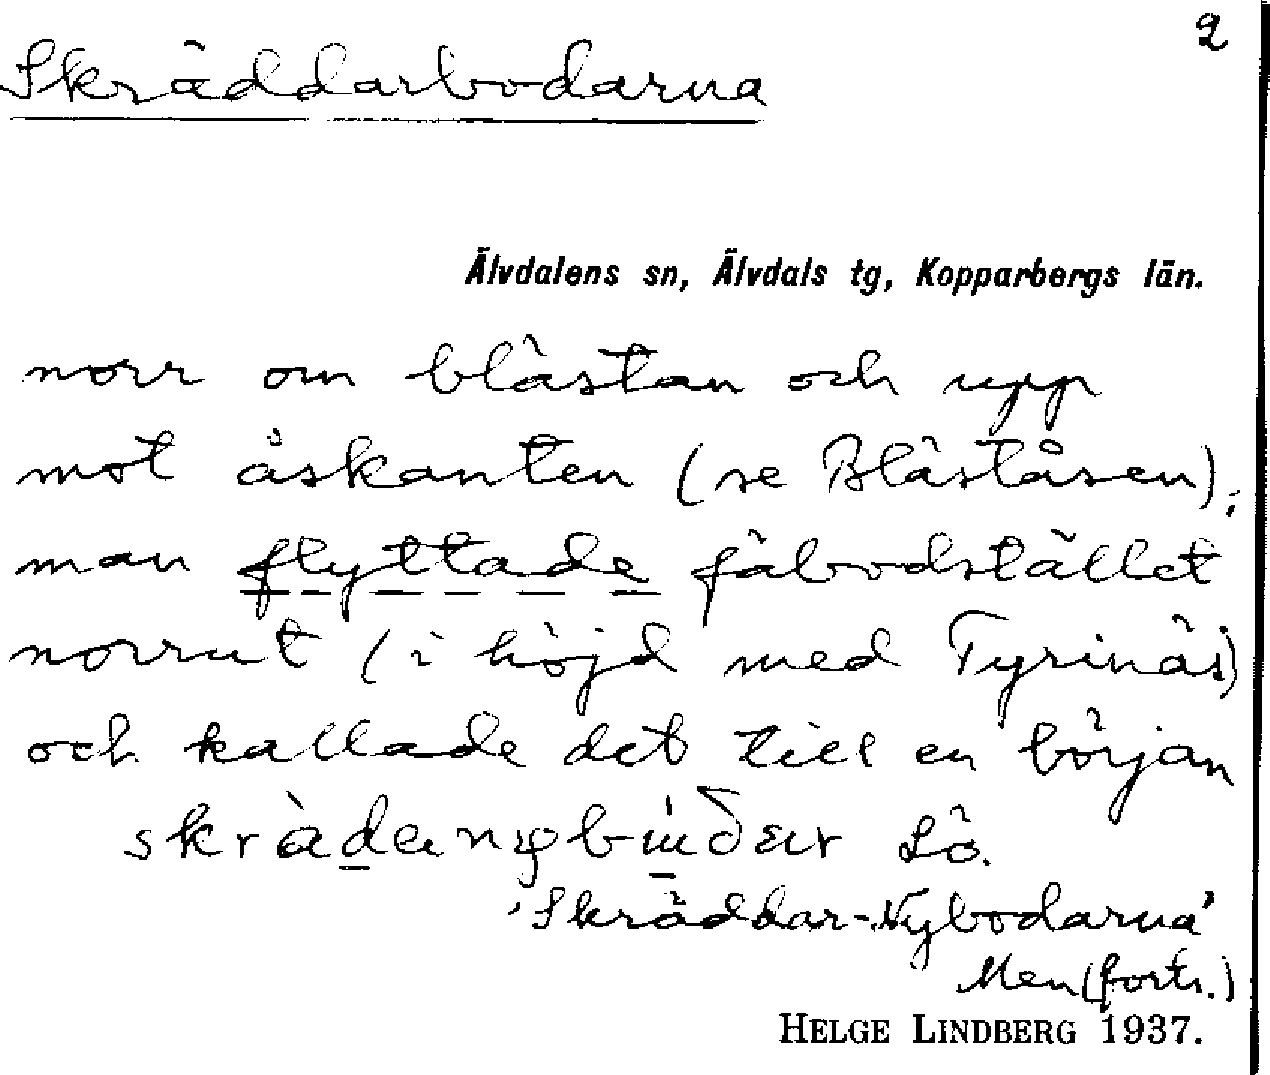 2
Skräddarbodarna
Älvdalens sn, Älvdals tg, Kopparbergs län.
norr om blåstan och upp
mot åskanten (se Blåståsen);
man flyttade fäbodstället
norrut (i höjd med Tyrinäs)
och kallade det till en början
Lö.
'Skräddar-Nybodarna'
Men (forts.)
HELGE LINDBERG 1937.